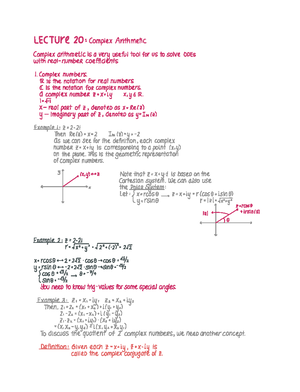 LECTURE 20: Complex Arithmetic
Complex arithmetic is a very useful tool for us to solve ODEs
with real-number coefficients
1. Complex numbers:
ℝ is the notation for real numbers
ℂ is the notation for complex numbers
A complex number z = x+iy x,y ∈ ℝ
i = √-1
x — real part of z, denoted as x = Re(z)
y — imaginary part of z, denoted as y = Im(z)
Example 1: z = 2-2i
Then Re(z) = x = 2 Im(z) = y = -2
As we can see for the definition, each complex
number z = x+iy is corresponding to a point (x,y)
on the plane. This is the geometric representation
of complex numbers.
y
(x,y) ↔ z
x
Note that z = x+iy is based on the
Cartesian system. We can also use
the polar system:
Let { x = r cosθ → z = x+iy = r(cosθ + i sinθ)
y = r sinθ
r = |z| = √x²+y²
|z|
θ
Example 2: z = 2-2i
r = √x²+y² = √2²+(-2)² = 2√2
x = r cosθ ↔ 2 = 2√2 · cosθ → cosθ = √2/2
y = r sinθ ↔ -2 = 2√2 · sinθ → sinθ = -√2/2
{ cosθ = √2/2 → θ = -π/4
sinθ = -√2/2
You need to know trig-values for some special angles.
Example 3: z₁ = x₁+iy₁ z₂ = x₂+iy₂
Then, z₁+z₂ = (x₁+x₂) + i(y₁+y₂)
z₁-z₂ = (x₁-x₂) + i(y₁-y₂)
z₁·z₂ = (x₁+iy₁)·(x₂+iy₂)
= (x₁x₂-y₁y₂) + i(x₁y₂+x₂y₁)
To discuss the quotient of 2 complex numbers, we need another concept.
Definition: Given each z = x+iy, z̄ = x-iy is
called the complex conjugate of z.